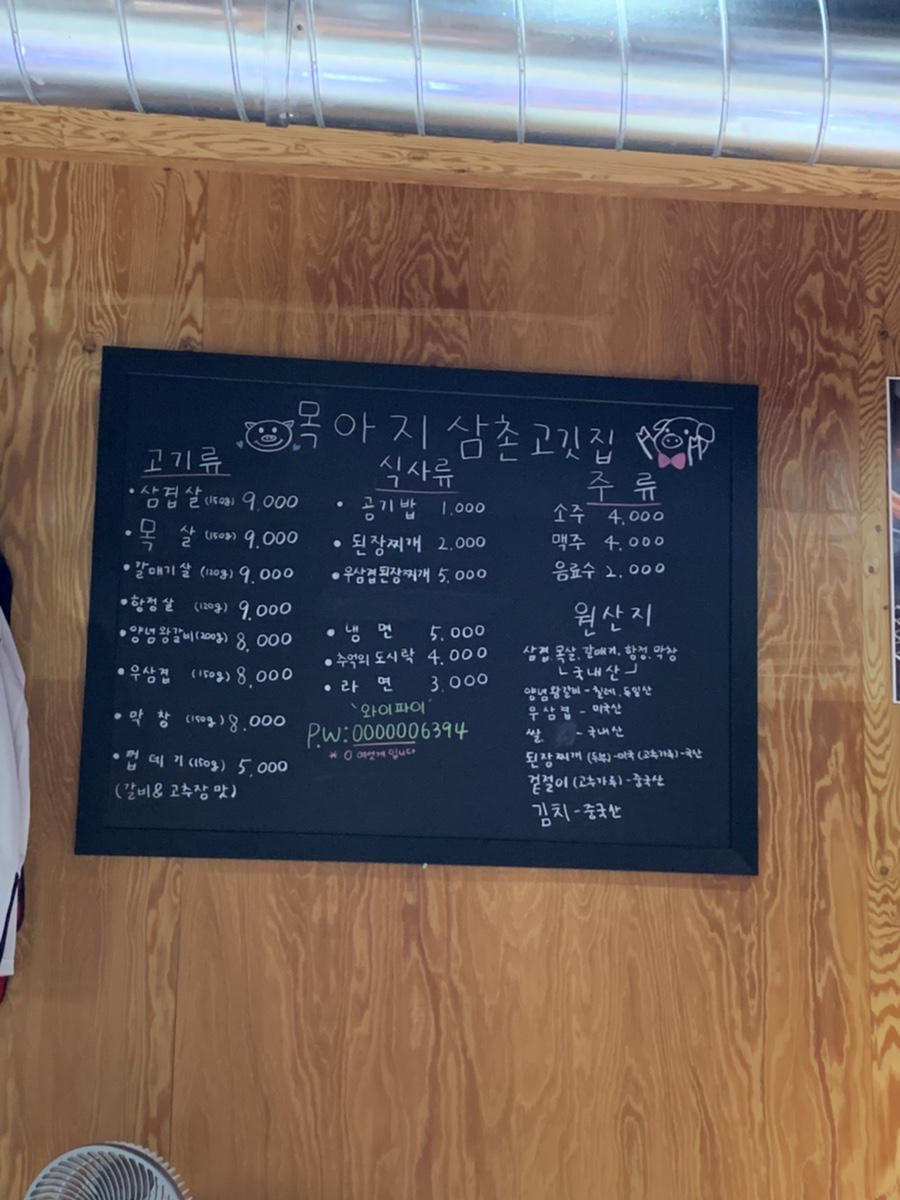 목아지 삼촌고깃집
고기류
• 삼겹살 (150g) 9,000
• 목 살 (150g) 9,000
• 갈매기살 (120g) 9,000
• 항정살 (120g) 9,000
• 양념왕갈비 (200g) 8,000
• 우삼겹 (150g) 8,000
• 막 창 (150g) 8,000
• 껍데기 (150g) 5,000
(갈비 & 고추장 맛)
식사류
• 공기밥 1,000
• 된장찌개 2,000
• 우삼겹된장찌개 5,000
• 냉 면 5,000
• 추억의 도시락 4,000
• 라 면 3,000
`와이파이´
P.W: 0000006394
* 0 여섯개 입니다
주 류
소주 4,000
맥주 4,000
음료수 2,000
원산지
삼겹, 목살, 갈매기, 항정, 막창
ㄴ국내산」
양념왕갈비 - 칠레, 독일산
우삼겹 - 미국산
쌀 - 국내산
된장찌개 (두부) - 미국 (고추가루) - 국산
겉절이 (고추가루) - 중국산
김치 - 중국산